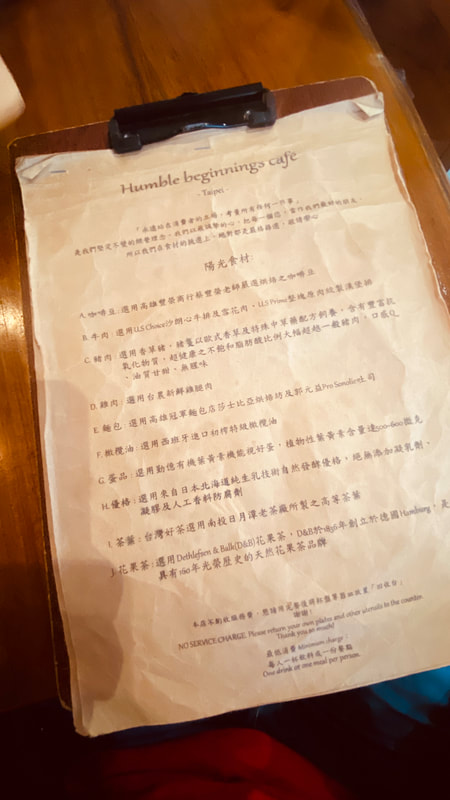 Humble beginnings café
- Taipei -
「永遠站在消費者的立場，考量所有任何一件事，
是我們堅定不變的經營理念。我們以最誠摯的心，把每一個您，當作我們最好的朋友，
所以我們在食材的挑選上，絕對都是嚴格篩選，敬請安心
陽光食材:
A.咖啡豆: 選用高雄豐榮商行蔡豐榮老師嚴選烘焙之咖啡豆
B. 牛肉: 選用U.S Choice沙朗心牛排及雪花肉、U.S Prime整塊原肉絞製漢堡排
C. 豬肉: 選用香草豬，豬隻以歐式香草及特殊中草藥配方飼養，含有豐富抗
氧化物質，超健康之不飽和脂肪酸比例大幅超越一般豬肉，口感Q
、油質甘甜、無腥味
D. 雞肉: 選用台農新鮮雞腿肉
E. 麵包: 選用高雄冠軍麵包店莎士比亞烘焙坊及郭元益Pro Sonoler吐司
F. 橄欖油: 選用西班牙進口初榨特級橄欖油
G. 蛋品: 選用勤億有機葉黃素機能視好蛋，植物性葉黃素含量達500~600微克
H. 優格: 選用來自日本北海道純生乳技術自然發酵優格，絕無添加凝乳劑、
凝膠及人工香料防腐劑
I. 茶葉: 台灣好茶選用南投日月潭老茶廠所製之高等茶葉
J. 花果茶: 選用Dethlefsen & Balk(D&B)花果茶，D&B於1836年創立於德國Hamburg，是
具有160年光榮歷史的天然花果茶品牌
本店不酌收服務費，懇請用完餐後將杯盤萃器皿放置「回收台」
謝謝!
NO SERVICE CHARGE. Please return your own plates and other utensils to the counter.
Thank you so much!
最低消費 Minimum charge :
每人一杯飲料或一份餐點
One drink or one meal per person.